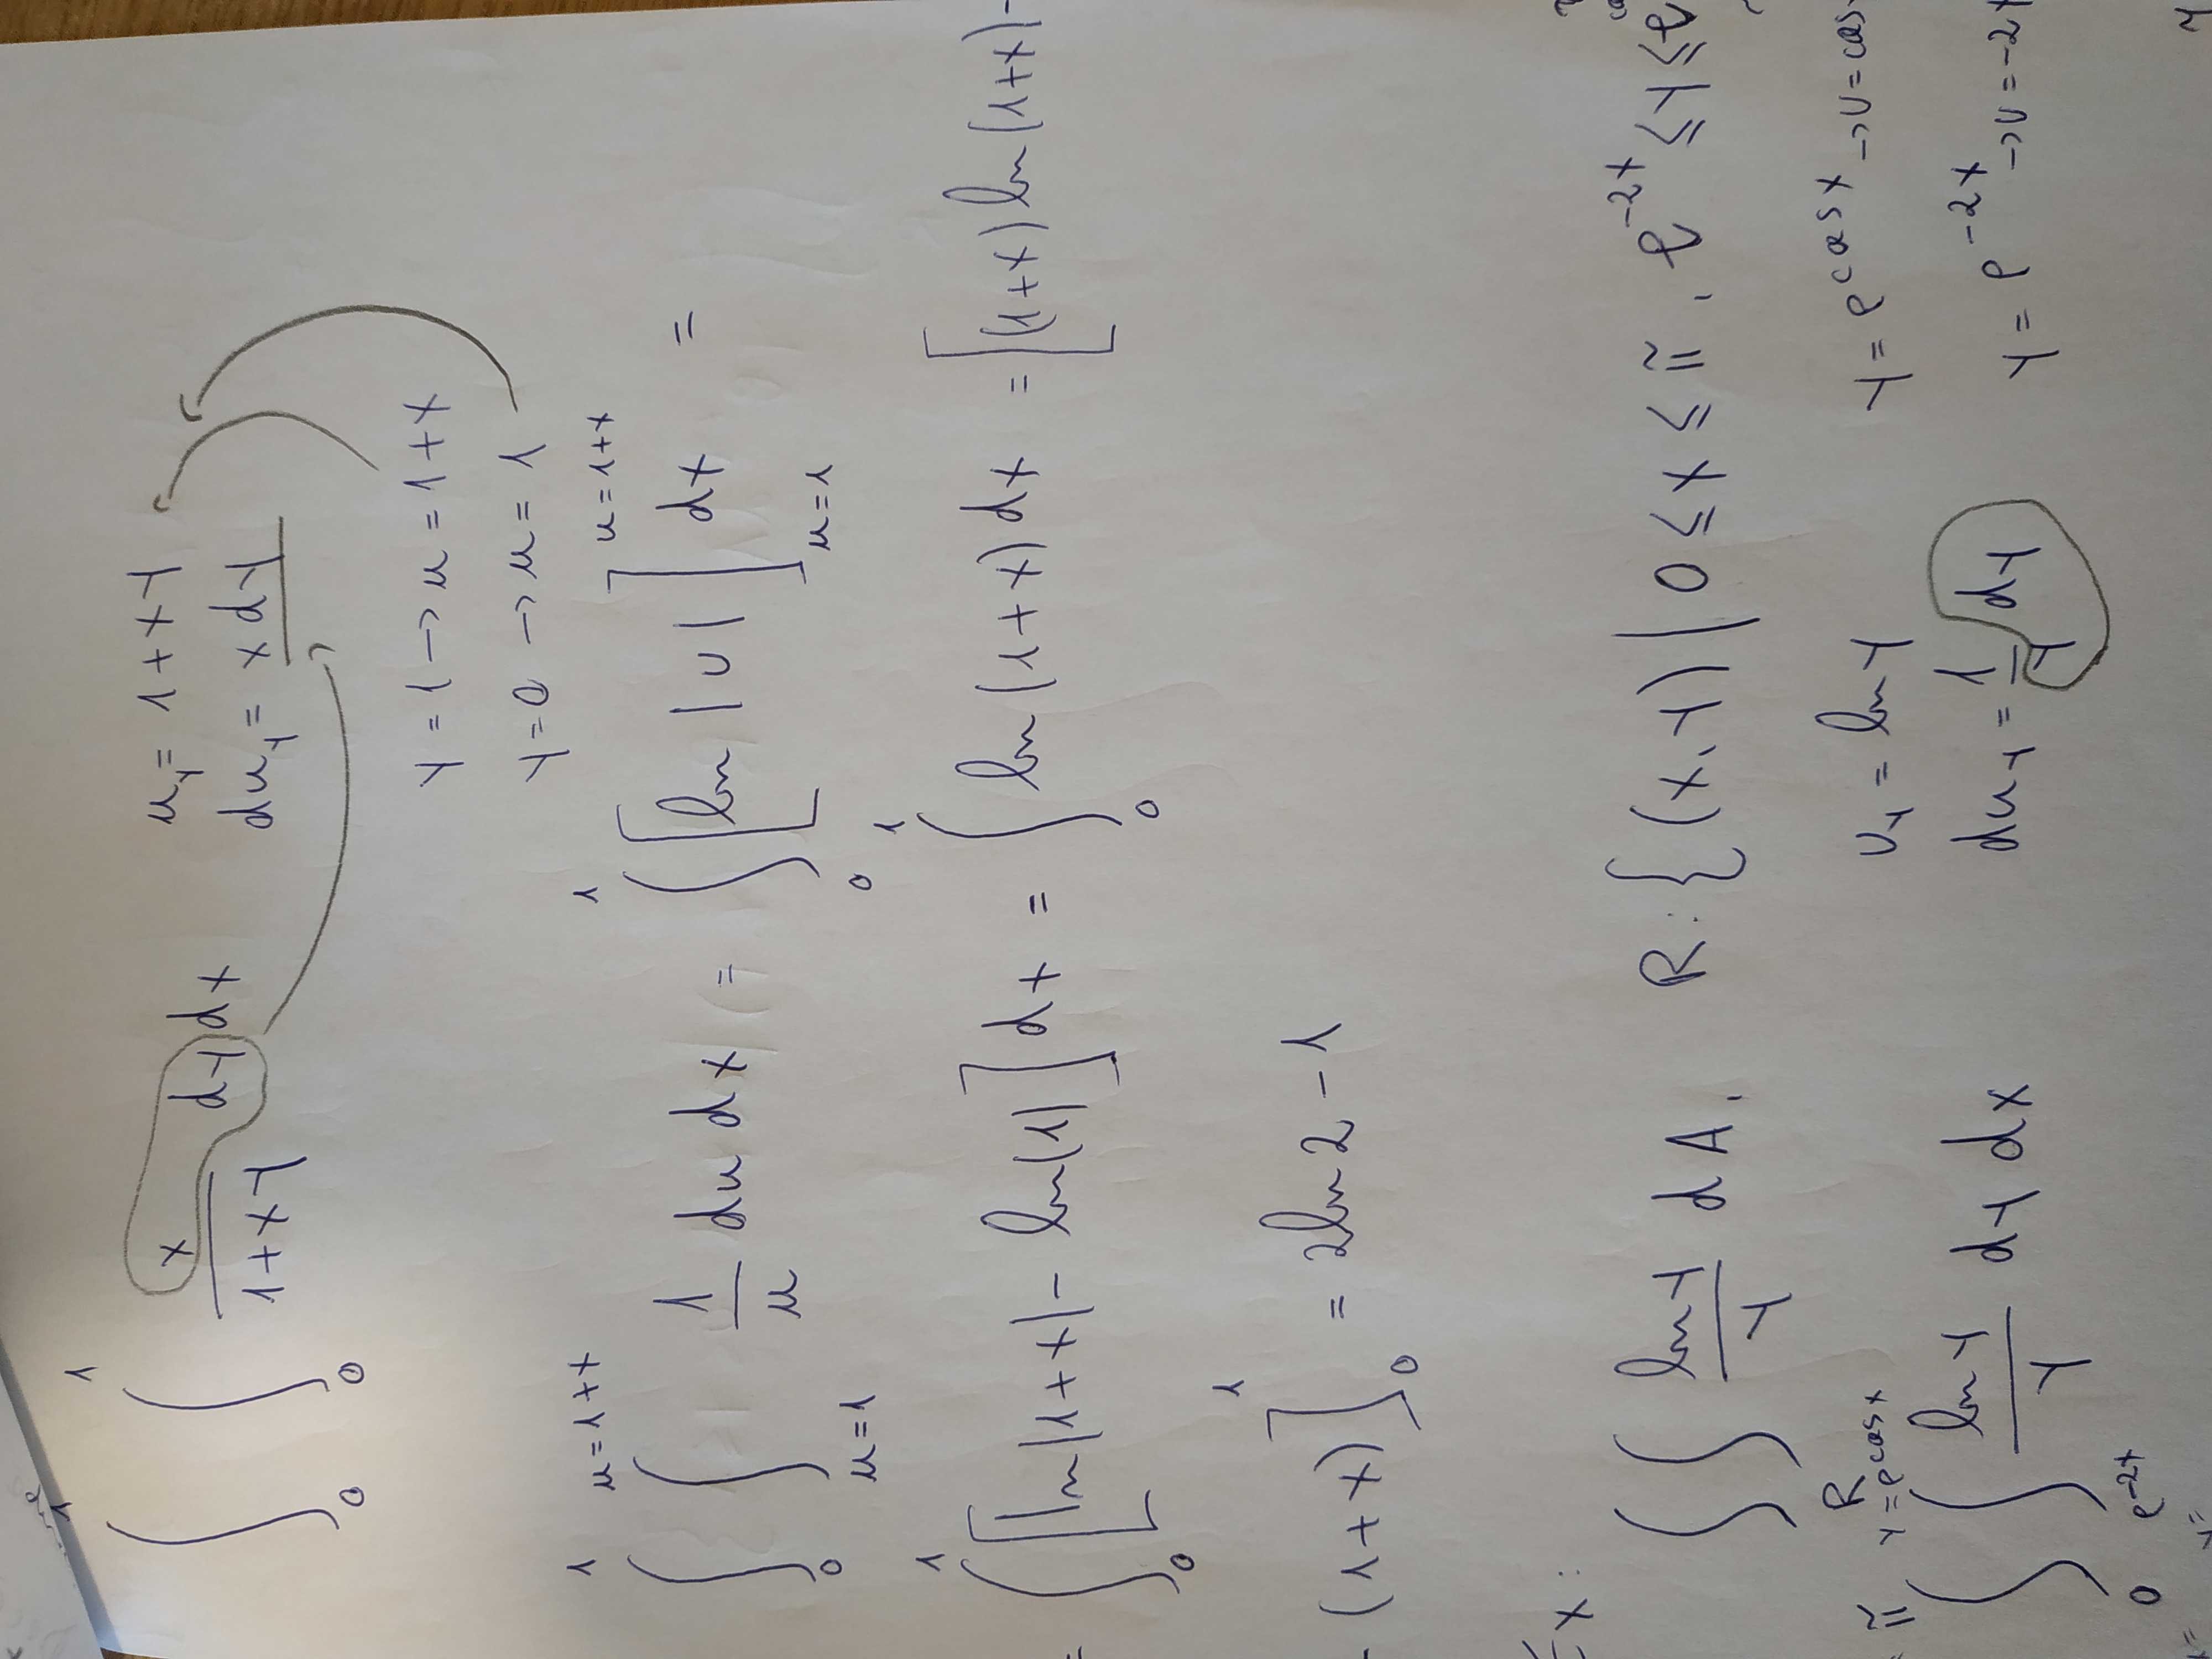 ∫₀¹ ∫₀¹ x/(1+xy) dy dx    u_y = 1+xy
du_y = x dy
y=1 → u=1+x
y=0 → u=1
∫₀¹ ∫_{u=1}^{u=1+x} 1/u du dx = ∫₀¹ [ln|u|]_{u=1}^{u=1+x} dx =
= ∫₀¹ [ln|1+x| - ln(1)] dx = ∫₀¹ ln(1+x) dx = [(1+x) ln(1+x) -
- (1+x)]₀¹ = 2ln2 - 1
Ex:
∫∫_R lny/y dA, R:{(x,y)| 0≤x≤π, e^{-2x}≤y≤e
u_y = lny    y = e^{cosx} → u=cos
∫₀^π ∫_{e^{-2x}}^{y=e^{cosx}} lny/y dy dx    du_y = 1/y dy    y = e^{-2x} → u=-2x